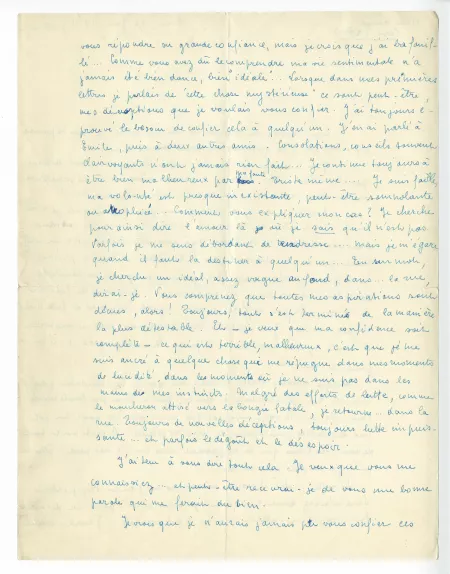 vous répondre en grande confiance, mais je crois que j'ai bien failli
... Comme vous avez dû le comprendre ma vie sentimentale n'a
jamais été bien dance, bien "idéale". Lorsque dans mes premières
lettres je parlais de "cette chose mystérieuse" ce sont peut-être,
mes déceptions que je voulais vous confier. J'ai toujours é-
prouvé le besoin de confier cela à quelqu'un. J'en ai parlé à
Emile, puis à deux autres amis. Consolations, conseils souvent
clairvoyants n'ont jamais rien fait... Je continue toujours à
être bien malheureux par ma faute. Triste même.... Je suis faible,
ma volonté est presque inexistante, peut-être somnolante
ou atrophiée... Comment vous expliquer mon cas? Je cherche
pour ainsi dire l'amour là où je sais qu'il n'est pas
Parfois je me sens débordant de tendresse... mais je m'égare
quand il faut la destiner à quelqu'un... En un mot,
je cherche un idéal, assez vague au fond, dans... la rue,
dirai-je. Vous comprenez que toutes mes aspirations sont
déçues, alors! Toujours, tout s'est terminé de la manière
la plus détestable. Et - je veux que ma confidence soit
complète - ce qui est terrible, malheureux, c'est que je me
suis ancré à quelque chose qui me répugne dans mes moments
de lucidité, dans les moments où je ne suis pas dans les
mains de mes instincts. Malgré des efforts de lutte, comme
le moucheron attiré vers la bougie fatale, je retourne... dans la
rue. Toujours de nouvelles déceptions, toujours lutte impuis-
sante... et parfois le dégoût et le désespoir.
J'ai tenu à vous dire tout cela. Je veux que vous me
connaissiez... et peut-être recevrai-je de vous une bonne
parole qui me ferait du bien.
Je crois que je n'aurais jamais pu vous confier ces